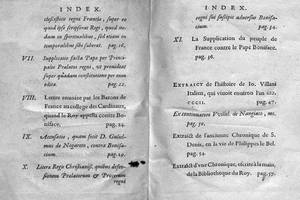 INDEX.
disistitis regni Franciæ, super eo
quod ipse scripserat Regi, quod
dam in spiritualibus, sed etiam in
temporalibus sibi suberat. pag. 16.
VII. Supplicatio facta Papæ per Prin-
cipales Prælatos regni, ut provideat
super quâdam
pag. 22.
VIII. Lettre envoiée par les Barons de
France au college des Cardinaux,
quand le Roy appella contre Bo-
niface. pag. 24.
IX. Accusatio, quam fecit D. Guillel-
mus de Nogareto, contra Bonifa-
cium. pag. 29.
X. Litera Regis Christianiss. quibus defen-
Prælatorum & Procerum
regni
INDEX.
regni sui suscipit adversus Bonifa-
cium. pag. 34.
XI. La Supplication du peuple de
France contre le Pape Boniface.
pag. 36.
EXTRAICT de l'histoire de Io. Villani
Italien, qui vivoit environ l'an
CCCII. pag. 47.
Ex continuatore de Nangiaco, ms.
pag. 52.
Extraict de l'ancienne Chronique de S.
Denis, en la vie de Philippes le Bel.
pag. 54.
Extraict d'une Chronique, escrite à la main,
de la Bibliotheque du Roy. pag. 57.